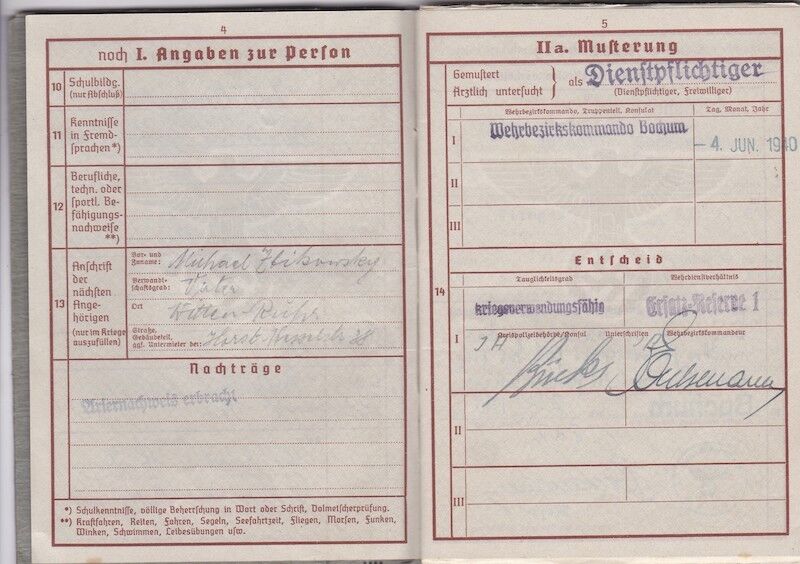 4
noch I. Angaben zur Person
10 Schulbildg. (nur Abschluß)
11 Kenntnisse in Fremd- sprachen *)
12 Berufliche, techn. oder sportl. Be- fähigungs- nachweise **)
13 Anschrift der nächsten Ange- hörigen (nur im Kriege auszufüllen)
Vor- und Zuname: Michael
Verwandt- schaftsgrad: Vater
Ort Witten-Ruhr
Straße, Gebäudeteil, ggf. Untermieter bei: Horst-Wessel-Str. 38
Nachträge
Ariernachweis erbracht
*) Schulkenntnisse, völlige Beherrschung in Wort oder Schrift, Dolmetscherprüfung.
**) Kraftfahren, Reiten, Fahren, Segeln, Seefahrtzeit, Fliegen, Morsen, Funken,
Winken, Schwimmen, Leibesübungen usw.
5
IIa. Musterung
Gemustert
Ärztlich untersucht } als Dienstpflichtiger
(Dienstpflichtiger, Freiwilliger)
Wehrbezirkskommando, Truppenteil, Konsulat Tag, Monat, Jahr
I Wehrbezirkskommando Bochum – 4. JUN. 1940
II
III
14
Entscheid
Tauglichkeitsgrad Wehrdienstverhältnis
kriegsverwendungsfähig Ersatz-Reserve 1
I Kreispolizeibehörde/Konsul Unterschriften Wehrbezirkskommandeur
II
III